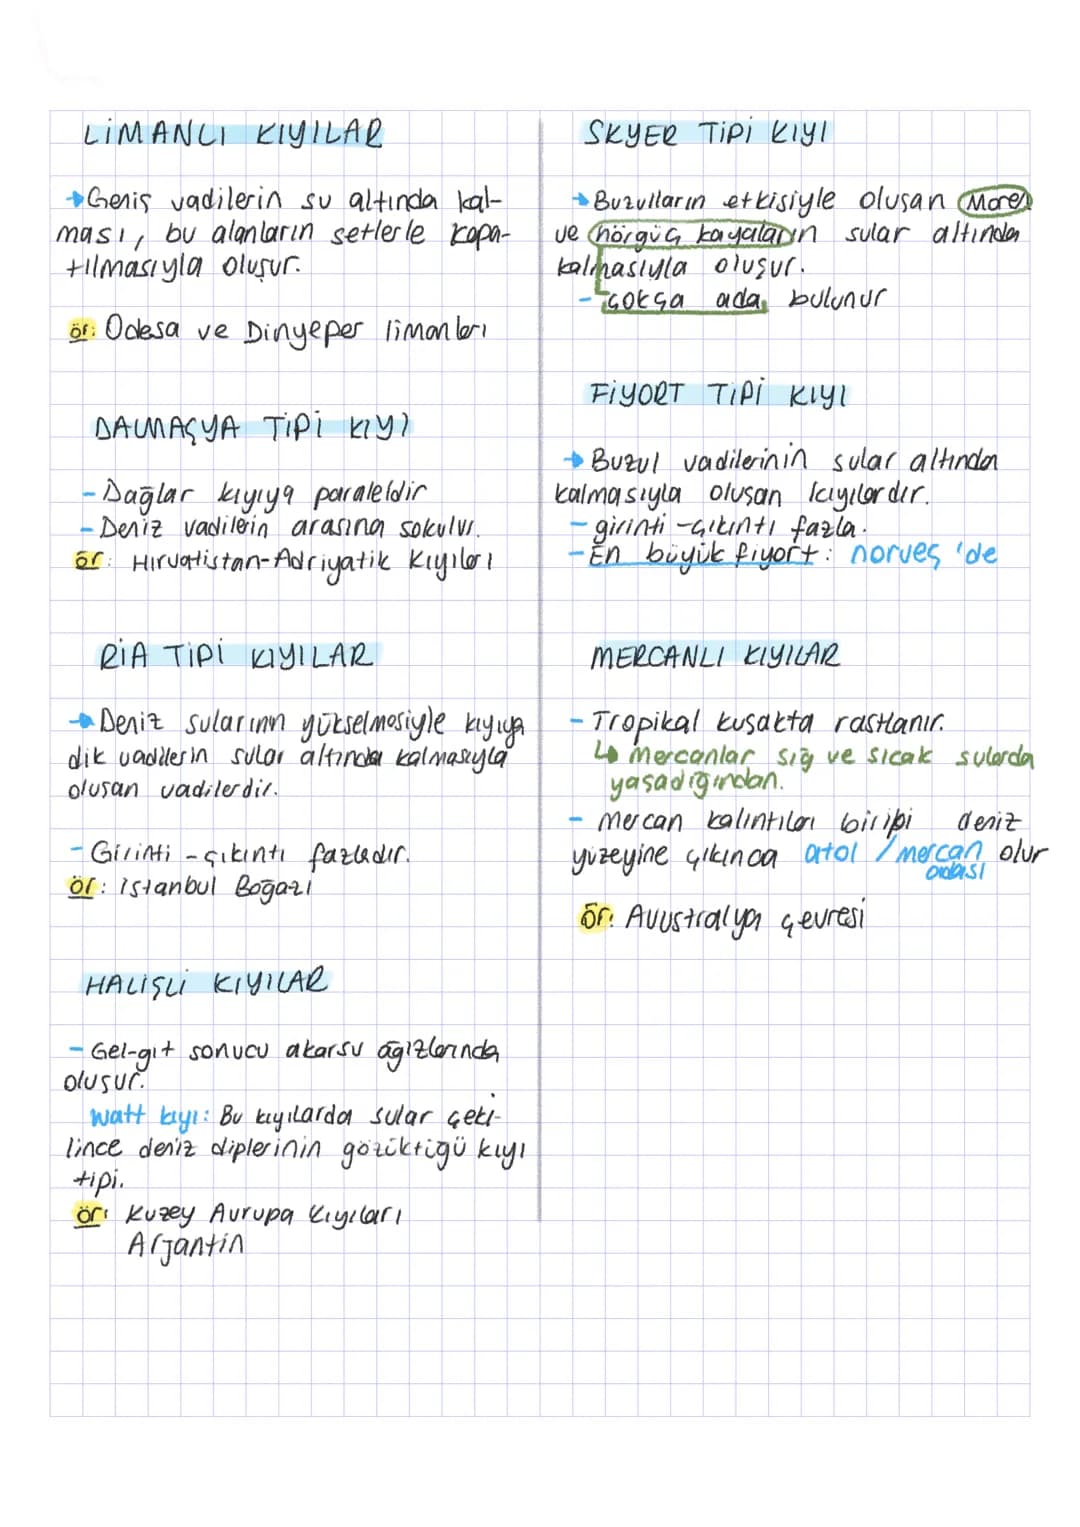 LİMANLI KIYILAR
→Geniş vadilerin su altında kal-
ması, bu alanların setlerle kapa-
tılmasıyla oluşur.
ör: Odesa ve Dinyeper limanları
DALMAÇYA TİPİ KIYI
- Dağlar kıyıya paraleldir
- Deniz vadilerin arasına sokulur.
ör: Hırvatistan-Adriyatik Kıyıları
RİA TİPİ KIYILAR
→ Deniz sularının yükselmesiyle kıyıya
dik vadilerin sular altında kalmasıyla
oluşan vadilerdir.
- Girinti - çıkıntı fazladır.
ör: İstanbul Boğazı
HALİÇLİ KIYILAR
- Gel-git sonucu akarsu ağızlarında
oluşur.
Watt kıyı: Bu kıyılarda sular çeki-
lince deniz diplerinin gözüktüğü kıyı
tipi.
ör: Kuzey Avrupa Kıyıları
Arjantin
SKYER TİPİ KIYI
→ Buzulların etkisiyle oluşan Moren
ve hörgüç kayaların sular altında
kalmasıyla oluşur.
- çokça ada bulunur
FİYORT TİPİ KIYI
→ Buzul vadilerinin sular altında
kalmasıyla oluşan kıyılardır.
- girinti-çıkıntı fazla.
- En büyük fiyort: norveç'de
MERCANLI KIYILAR
- Tropikal kuşakta rastlanır.
↳ Mercanlar sığ ve sıcak sularda
yaşadığından.
- Mercan kalıntıları biripi deniz
yüzeyine çıkınca atol / mercan olur
adası
ör: Avustralya çevresi